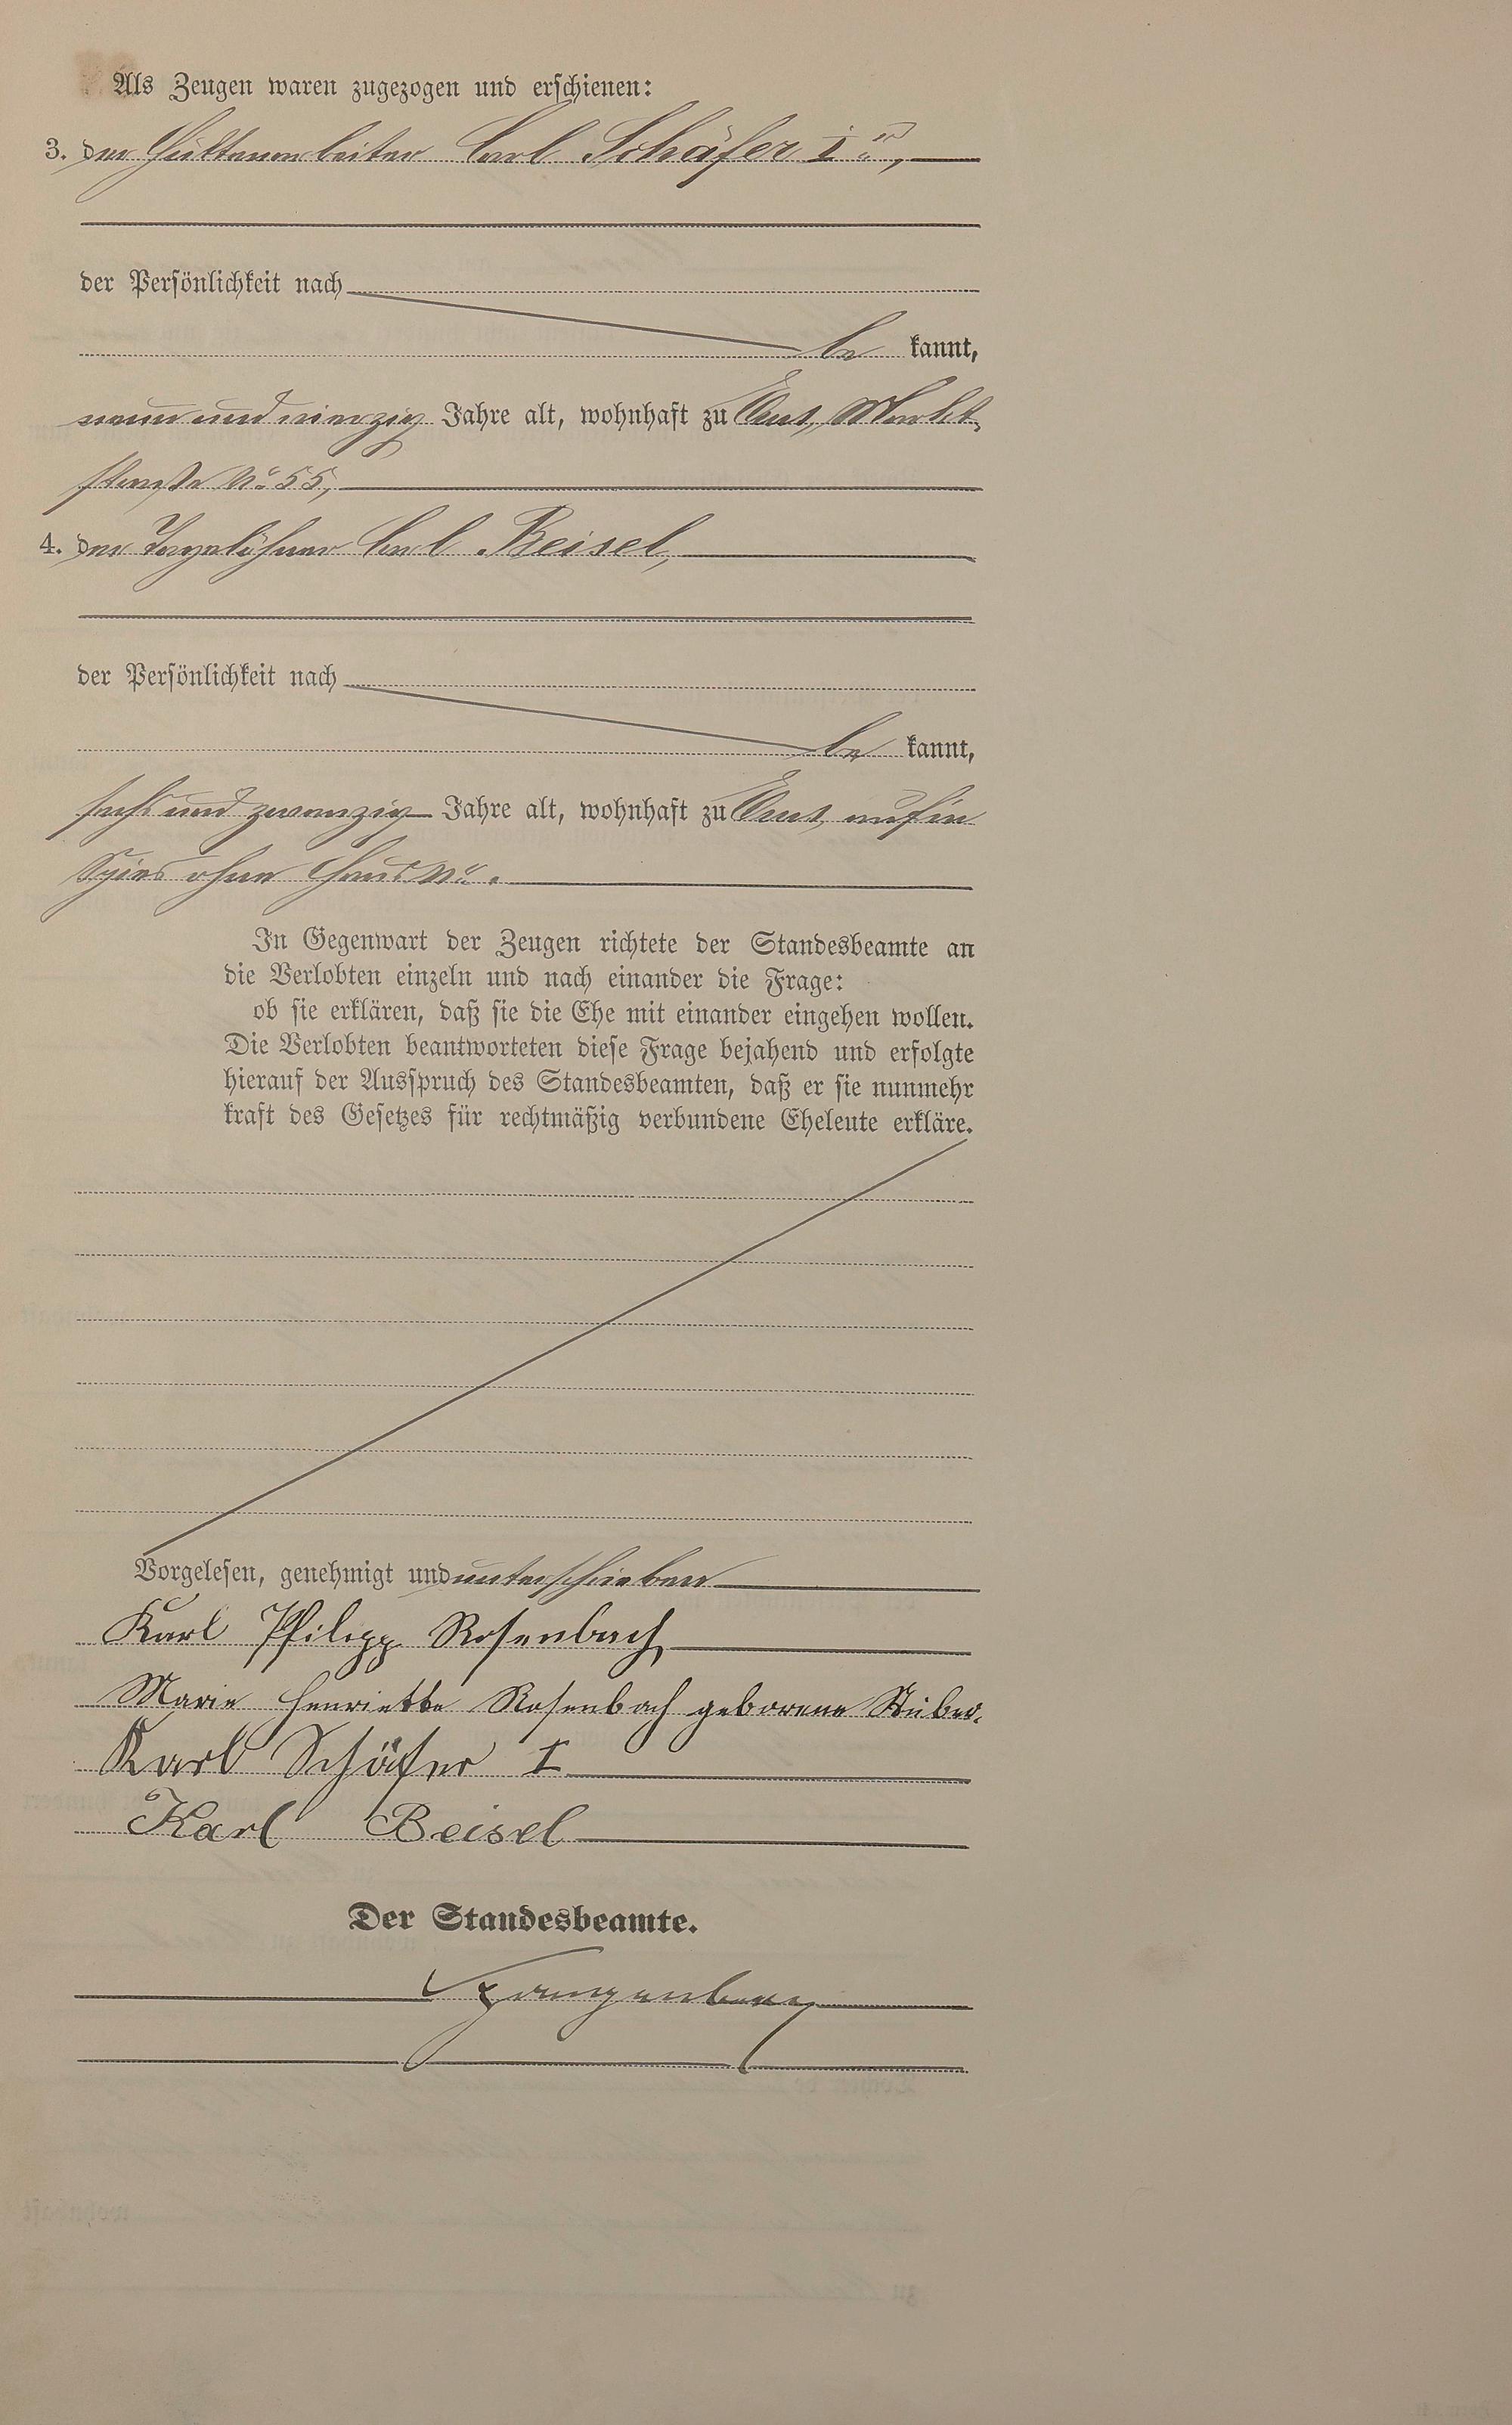 Als Zeugen waren zugezogen und erschienen:
3. der Hüttenarbeiter Carl Schäfer Ir,
der Persönlichkeit nach
be kannt,
neun und vierzig Jahre alt, wohnhaft zu Ems, Markt-
straße No 55,
4. der Tagelöhner Carl Beisel,
der Persönlichkeit nach
be kannt,
sechs und zwanzig Jahre alt, wohnhaft zu Ems,
Spies ohne Haus No.
In Gegenwart der Zeugen richtete der Standesbeamte an
die Verlobten einzeln und nach einander die Frage:
ob sie erklären, daß sie die Ehe mit einander eingehen wollen.
Die Verlobten beantworteten diese Frage bejahend und erfolgte
hierauf der Ausspruch des Standesbeamten, daß er sie nunmehr
kraft des Gesetzes für rechtmäßig verbundene Eheleute erkläre.
Vorgelesen, genehmigt und unterschrieben
Karl Philipp Rosenbach
Marie Henriette Rosenbach geborene Stüber.
Karl Schäfer I
Karl Beisel
Der Standesbeamte.
Spangenberg